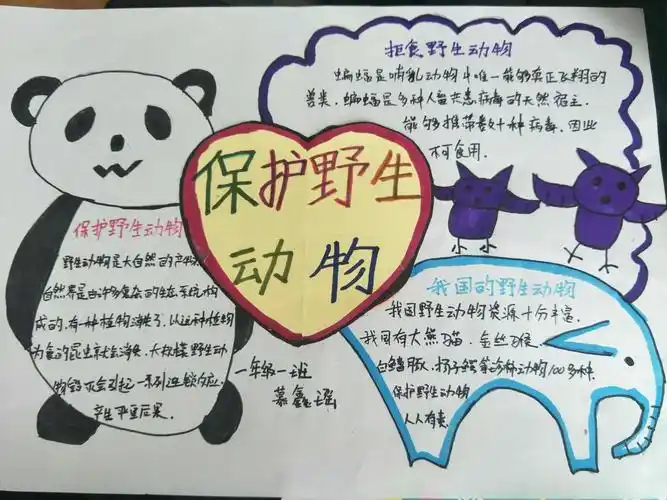 保护野生
动物
拒食野生动物
蝙蝠是哺乳动物中唯一能够真正飞翔的
兽类，蝙蝠是多种人畜共患病毒的天然宿主，
能够携带数十种病毒，因此
不可食用．
保护野生动物
野生动物是大自然的产物，
自然界是由许多复杂的生态系统构
成的，有一种植物消失了，以这种植物
为食的昆虫就会消失．大规模野生动
物毁灭会引起一系列连锁反应，
产生严重后果．
我国的野生动物
我国野生动物资源十分丰富．
我国有大熊猫、金丝猴、
白鳍豚，扬子鳄等珍稀动物100多种．
保护野生动物
人人有责
一年第一班
慕鑫瑶